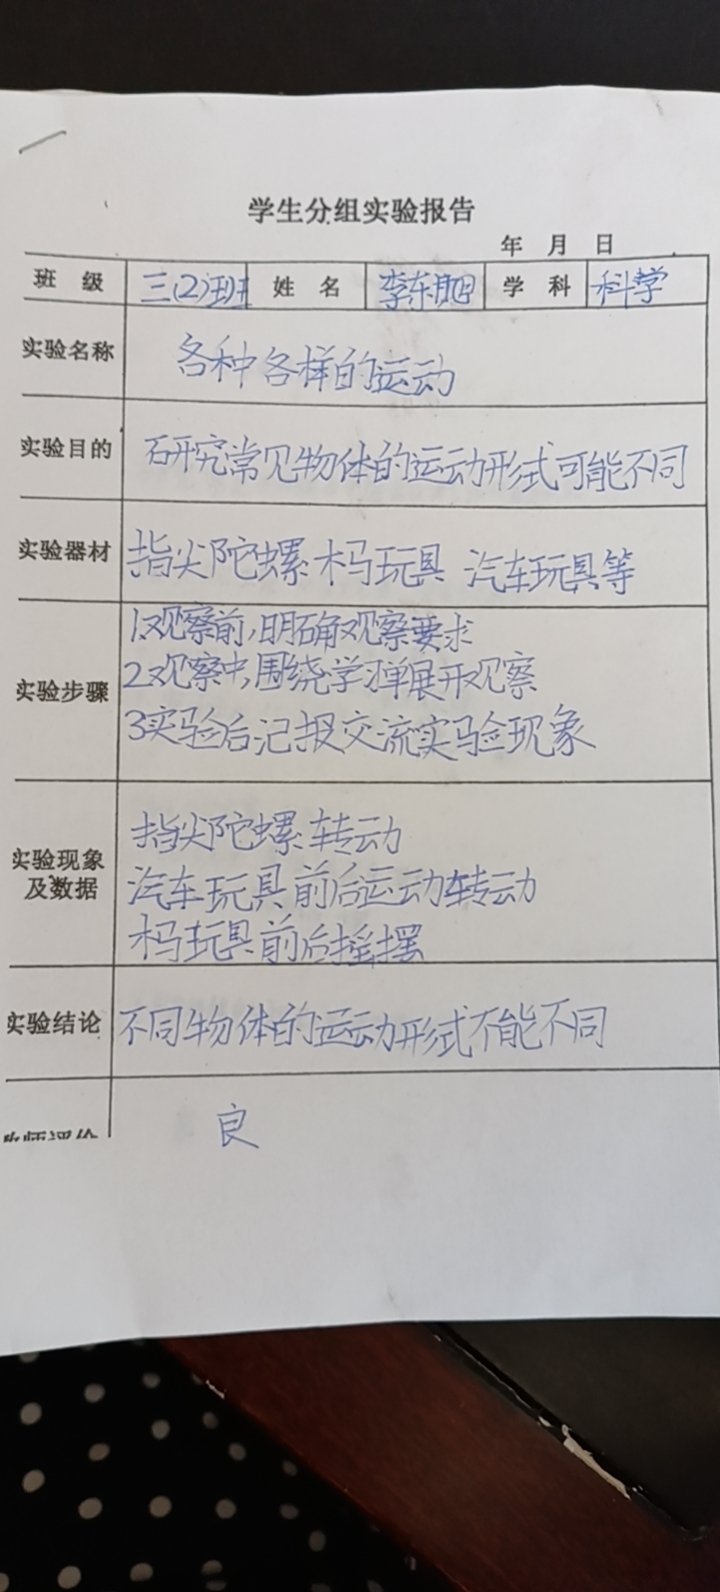 学生分组实验报告
年 月 日
班 级 三(2)班 姓 名 李东旭 学 科 科学
实验名称 各种各样的运动
实验目的 研究常见物体的运动形式可能不同
实验器材 指尖陀螺 木马玩具 汽车玩具等
实验步骤
1观察前,明确观察要求
2观察中,围绕学习单展开观察
3实验后记报交流实验现象
实验现象及数据
指尖陀螺转动
汽车玩具前后运动转动
木马玩具前后摇摆
实验结论 不同物体的运动形式不能不同
教师评价 良